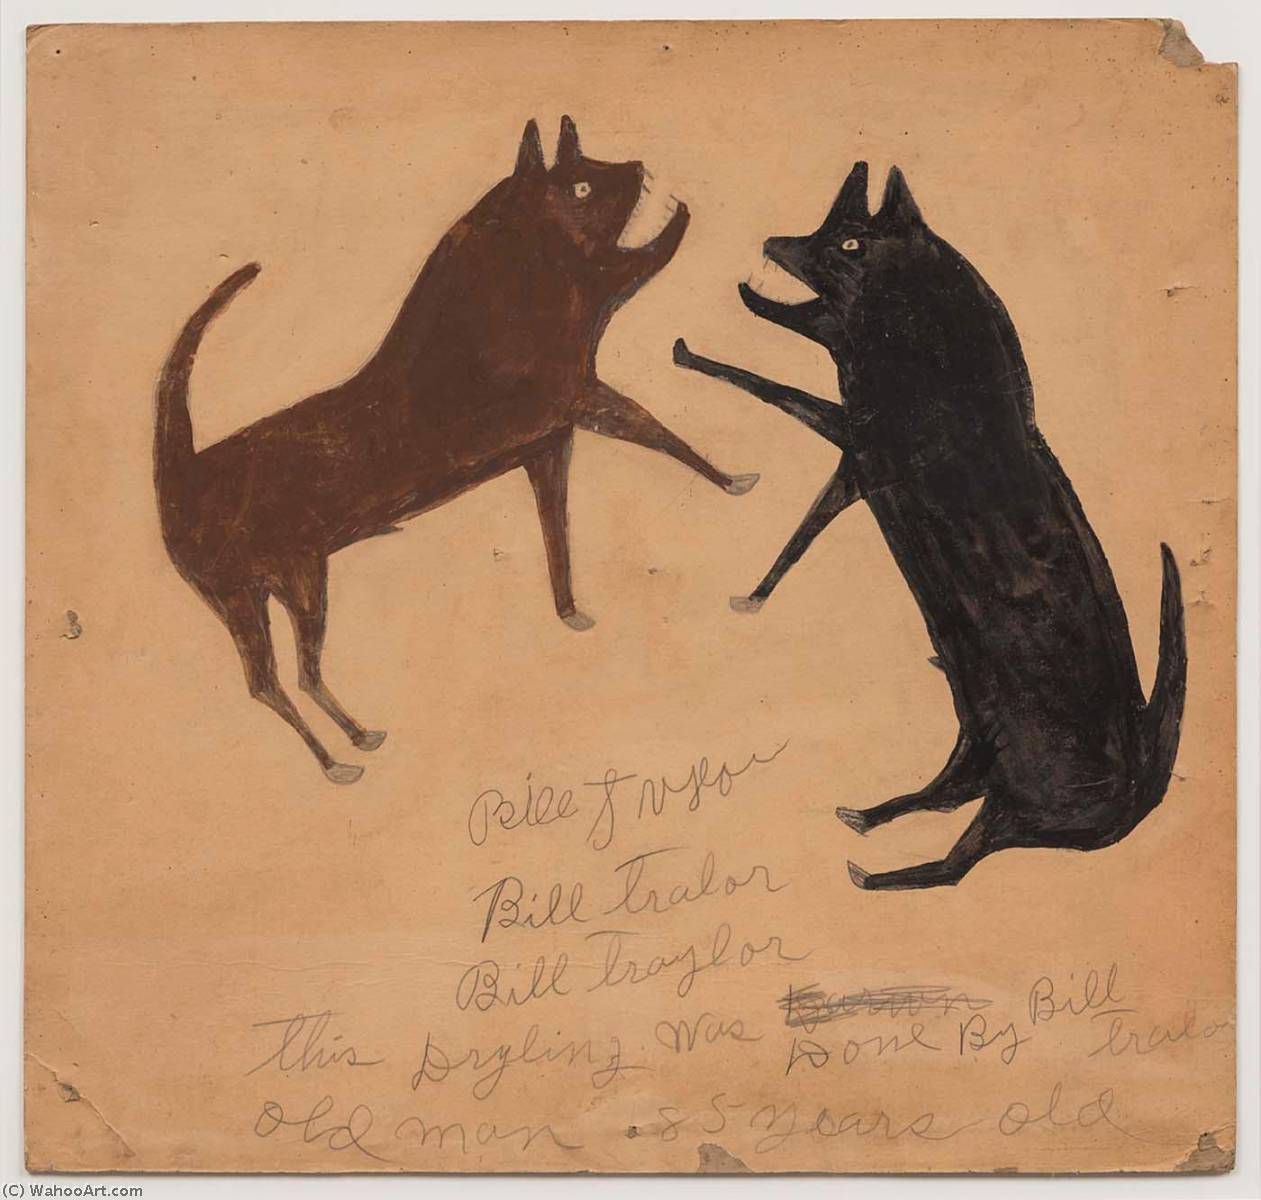 Bill
Bill Tralor
Bill Traylor
this Dryling was Done By Bill
Tralor
old man 85 years old
(C) WahooArt.com